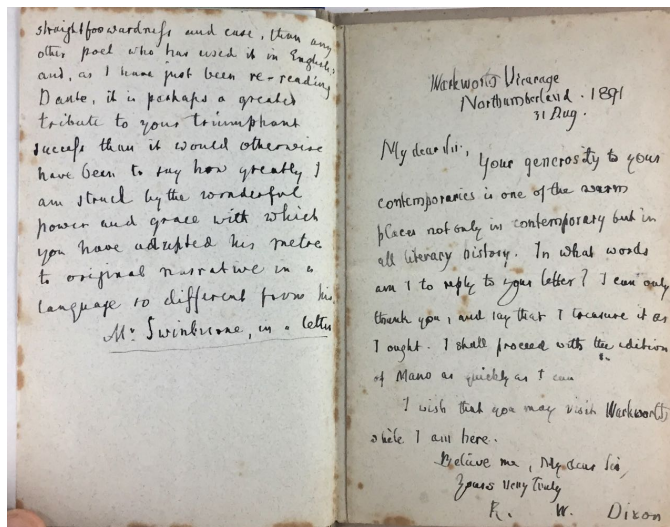 straightforwardness and ease, than any
other poet who has used it in English:
and, as I have just been re-reading
Dante, it is perhaps a greater
tribute to your triumphant
success than it would otherwise
have been to say how greatly I
am struck by the wonderful
power and grace with which
you have adapted his metre
to original narrative in a
language so different from his.
Mr Swinburne, in a letter
Warkworth Vicarage
Northumberland . 1891
31 Aug.
My dear Sir, Your generosity to your
contemporaries is one of the warm
places not only in contemporary but in
all literary history. In what words
am I to reply to your letter? I can only
thank you, and say that I treasure it as
I ought. I shall proceed with the edition
of Mano as quickly as I can
I wish that you may visit Warkworth
while I am here.
Believe me, My dear Sir,
Yours very truly
R. W. Dixon